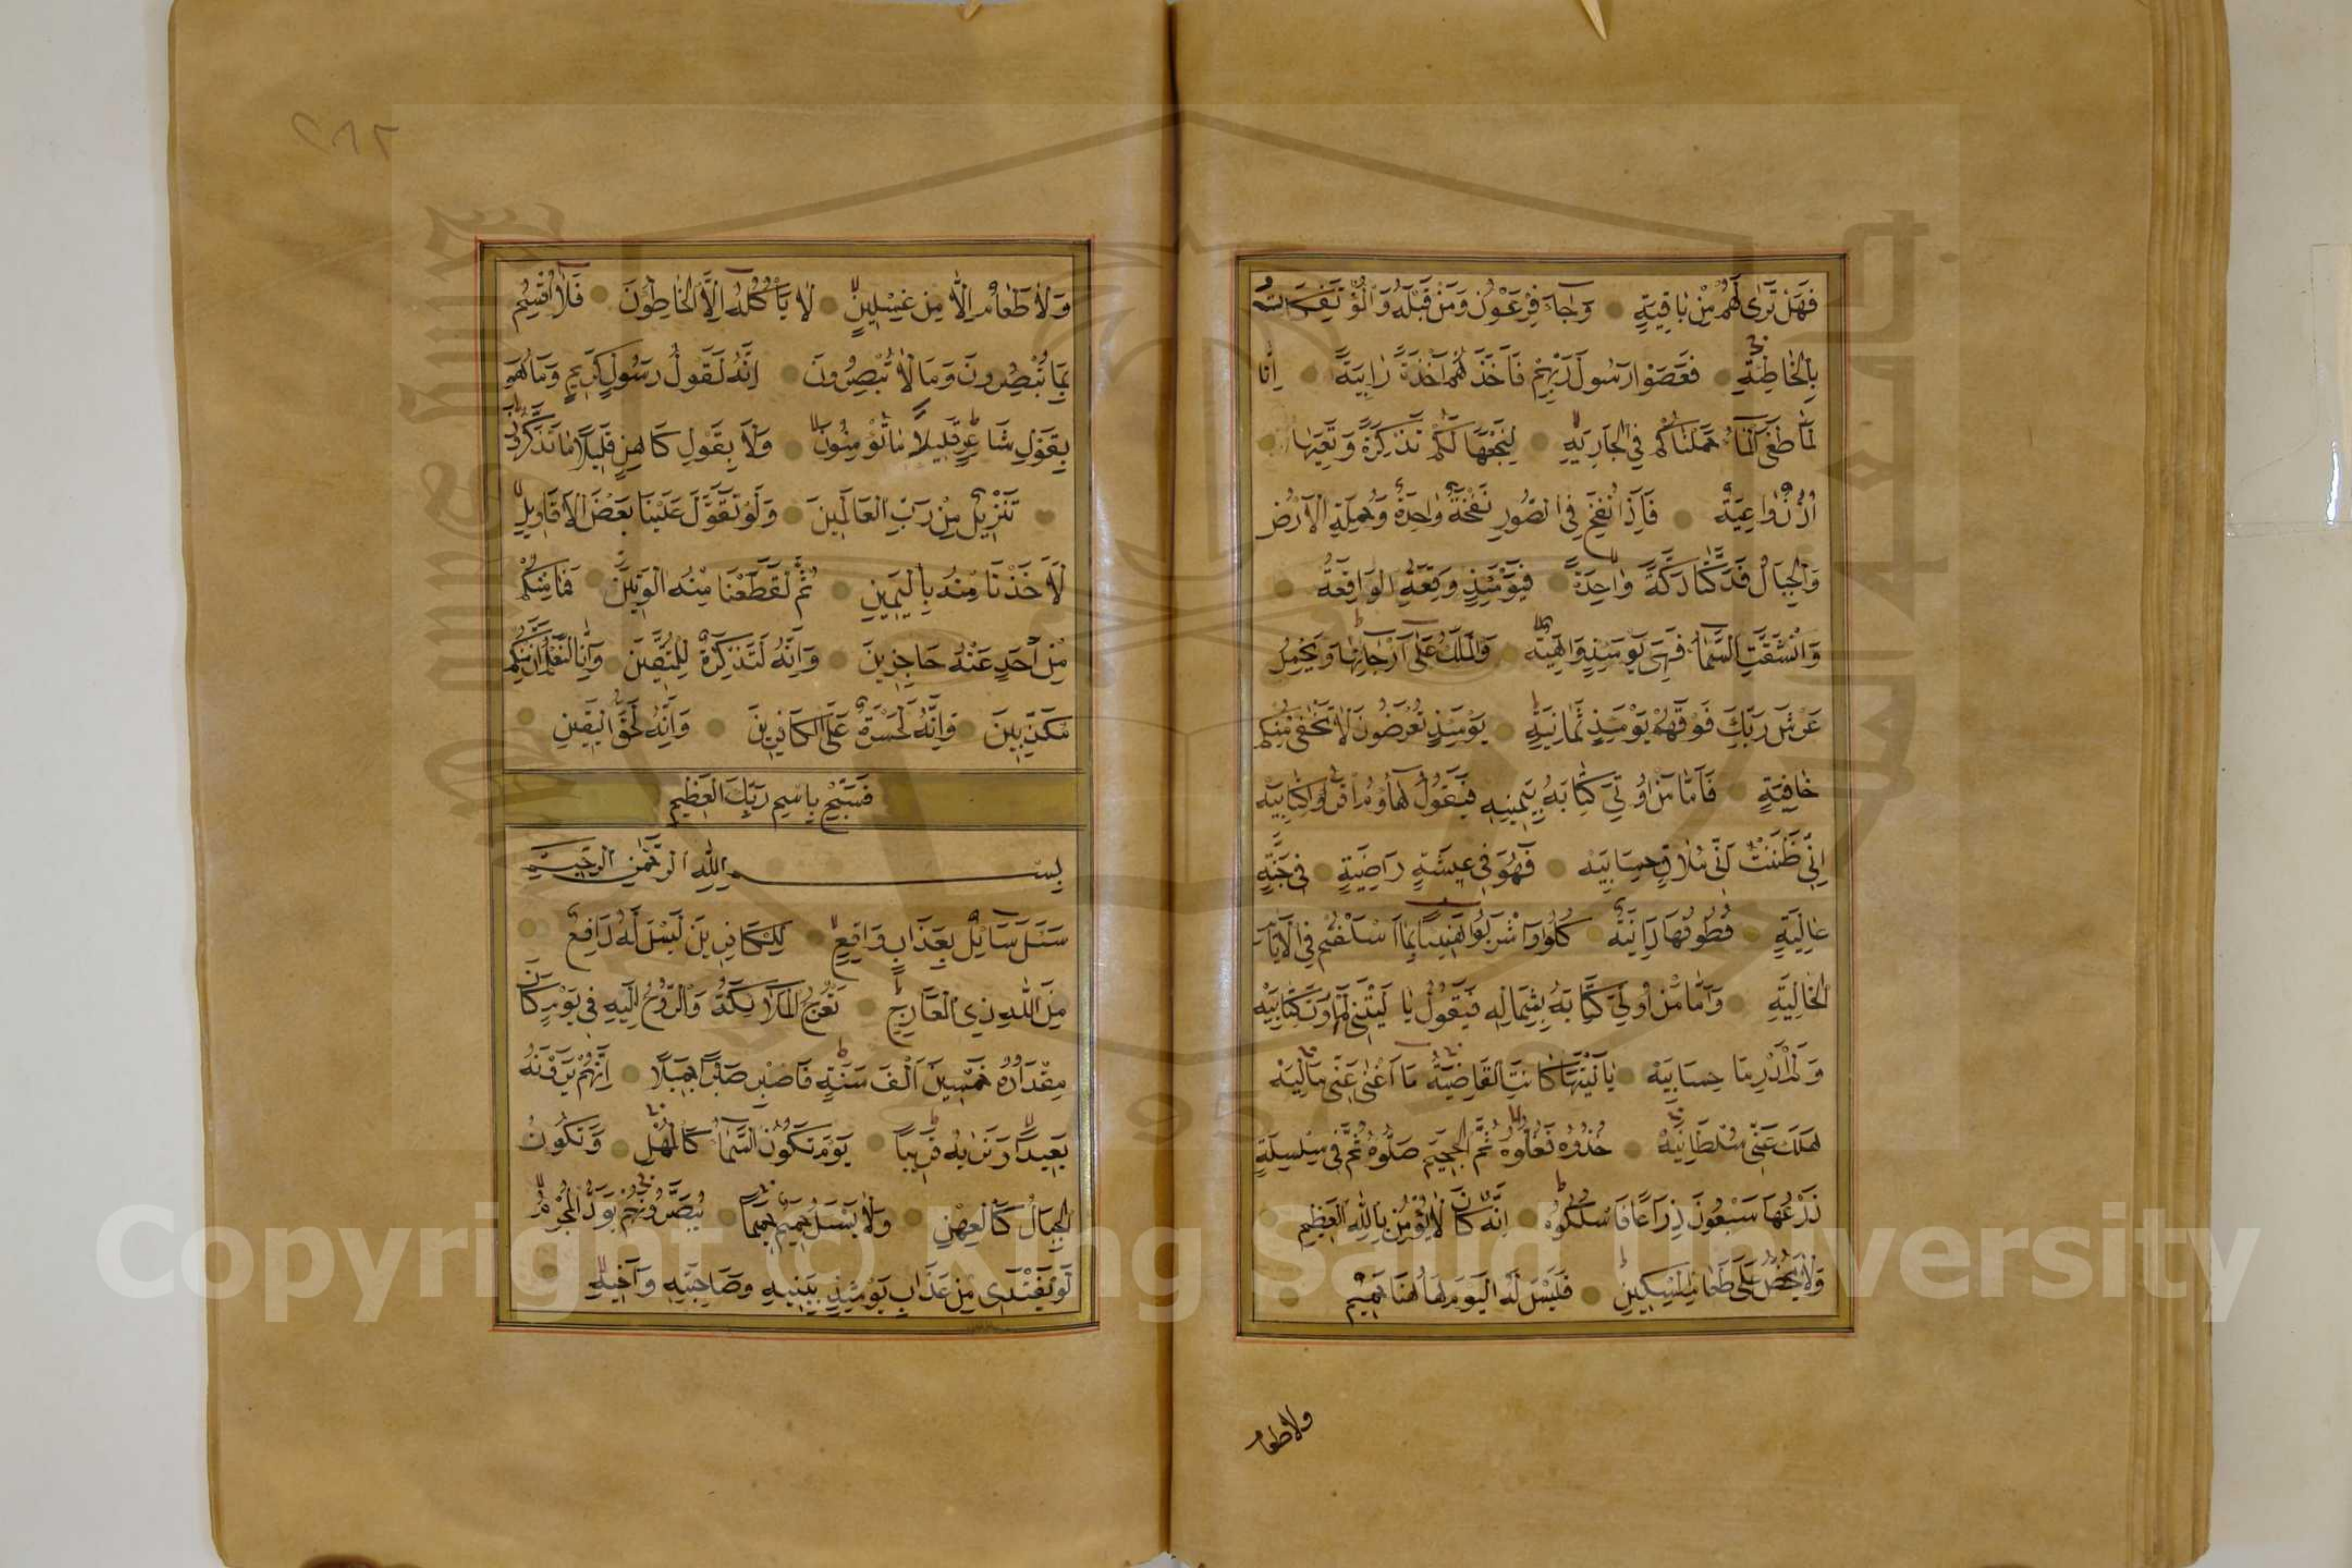 فَهَلْ تَرٰى لَهُمْ مِنْ بَاقِيَةٍ وَجَاءَ فِرْعَوْنُ وَمَنْ قَبْلَهُ وَالْمُؤْتَفِكَاتُ
بِالْخَاطِئَةِ فَعَصَوْا رَسُولَ رَبِّهِمْ فَاَخَذَهُمْ اَخْذَةً رَابِيَةً اِنَّا
لَمَّا طَغَى الْمَاءُ حَمَلْنَاكُمْ فِي الْجَارِيَةِ لِنَجْعَلَهَا لَكُمْ تَذْكِرَةً وَتَعِيَهَا
اُذُنٌ وَاعِيَةٌ فَاِذَا نُفِخَ فِي الصُّورِ نَفْخَةٌ وَاحِدَةٌ وَحُمِلَتِ الْاَرْضُ
وَالْجِبَالُ فَدُكَّتَا دَكَّةً وَاحِدَةً فَيَوْمَئِذٍ وَقَعَتِ الْوَاقِعَةُ
وَانْشَقَّتِ السَّمَاءُ فَهِيَ يَوْمَئِذٍ وَاهِيَةٌ وَالْمَلَكُ عَلٰى اَرْجَائِهَا وَيَحْمِلُ
عَرْشَ رَبِّكَ فَوْقَهُمْ يَوْمَئِذٍ ثَمَانِيَةٌ يَوْمَئِذٍ تُعْرَضُونَ لَا تَخْفٰى مِنْكُمْ
خَافِيَةٌ فَاَمَّا مَنْ اُوتِيَ كِتَابَهُ بِيَمِينِهِ فَيَقُولُ هَاؤُمُ اقْرَؤُا كِتَابِيَهْ
اِنِّي ظَنَنْتُ اَنِّي مُلَاقٍ حِسَابِيَهْ فَهُوَ فِي عِيشَةٍ رَاضِيَةٍ فِي جَنَّةٍ
عَالِيَةٍ قُطُوفُهَا دَانِيَةٌ كُلُوا وَاشْرَبُوا هَنِيئًا بِمَا اَسْلَفْتُمْ فِي الْاَيَّامِ
الْخَالِيَةِ وَاَمَّا مَنْ اُوتِيَ كِتَابَهُ بِشِمَالِهِ فَيَقُولُ يَا لَيْتَنِي لَمْ اُوتَ كِتَابِيَهْ
وَلَمْ اَدْرِ مَا حِسَابِيَهْ يَا لَيْتَهَا كَانَتِ الْقَاضِيَةَ مَا اَغْنٰى عَنِّي مَالِيَهْ
هَلَكَ عَنِّي سُلْطَانِيَهْ خُذُوهُ فَغُلُّوهُ ثُمَّ الْجَحِيمَ صَلُّوهُ ثُمَّ فِي سِلْسِلَةٍ
ذَرْعُهَا سَبْعُونَ ذِرَاعًا فَاسْلُكُوهُ اِنَّهُ كَانَ لَا يُؤْمِنُ بِاللّٰهِ الْعَظِيمِ
وَلَا يَحُضُّ عَلٰى طَعَامِ الْمِسْكِينِ فَلَيْسَ لَهُ الْيَوْمَ هٰهُنَا حَمِيمٌ
ولا طعام
٢٨٢
وَلَا طَعَامٌ اِلَّا مِنْ غِسْلِينٍ لَا يَأْكُلُهُ اِلَّا الْخَاطِؤُنَ فَلَا اُقْسِمُ
بِمَا تُبْصِرُونَ وَمَا لَا تُبْصِرُونَ اِنَّهُ لَقَوْلُ رَسُولٍ كَرِيمٍ وَمَا هُوَ
بِقَوْلِ شَاعِرٍ قَلِيلًا مَا تُؤْمِنُونَ وَلَا بِقَوْلِ كَاهِنٍ قَلِيلًا مَا تَذَكَّرُونَ
تَنْزِيلٌ مِنْ رَبِّ الْعَالَمِينَ وَلَوْ تَقَوَّلَ عَلَيْنَا بَعْضَ الْاَقَاوِيلِ
لَاَخَذْنَا مِنْهُ بِالْيَمِينِ ثُمَّ لَقَطَعْنَا مِنْهُ الْوَتِينَ فَمَا مِنْكُمْ
مِنْ اَحَدٍ عَنْهُ حَاجِزِينَ وَاِنَّهُ لَتَذْكِرَةٌ لِلْمُتَّقِينَ وَاِنَّا لَنَعْلَمُ اَنَّ مِنْكُمْ
مُكَذِّبِينَ وَاِنَّهُ لَحَسْرَةٌ عَلَى الْكَافِرِينَ وَاِنَّهُ لَحَقُّ الْيَقِينِ
فَسَبِّحْ بِاسْمِ رَبِّكَ الْعَظِيمِ
بسم اللّٰهِ الرَّحْمٰنِ الرَّحِيمِ
سَئَلَ سَائِلٌ بِعَذَابٍ وَاقِعٍ لِلْكَافِرِينَ لَيْسَ لَهُ دَافِعٌ
مِنَ اللّٰهِ ذِي الْمَعَارِجِ تَعْرُجُ الْمَلَائِكَةُ وَالرُّوحُ اِلَيْهِ فِي يَوْمٍ كَانَ
مِقْدَارُهُ خَمْسِينَ اَلْفَ سَنَةٍ فَاصْبِرْ صَبْرًا جَمِيلًا اِنَّهُمْ يَرَوْنَهُ
بَعِيدًا وَنَرٰيهُ قَرِيبًا يَوْمَ تَكُونُ السَّمَاءُ كَالْمُهْلِ وَتَكُونُ
الْجِبَالُ كَالْعِهْنِ وَلَا يَسْئَلُ حَمِيمٌ حَمِيمًا يُبَصَّرُونَهُمْ يَوَدُّ الْمُجْرِمُ
لَوْ يَفْتَدِي مِنْ عَذَابِ يَوْمِئِذٍ بِبَنِيهِ وَصَاحِبَتِهِ وَاَخِيهِ
Copyright © King Saud University